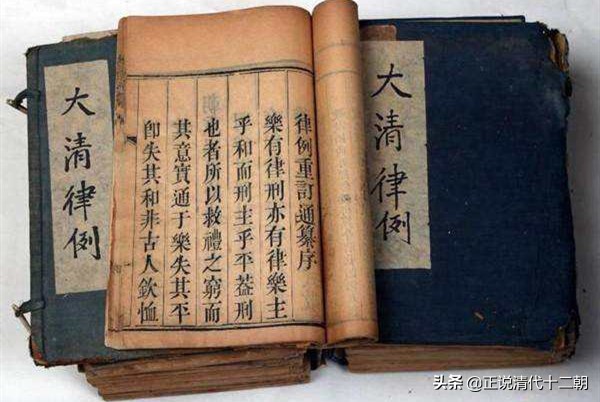 大清律例
律例重訂通纂序
樂有律刑亦有律樂主
乎和而刑主乎平蓋刑
也者所以救禮之窮而
其意實通于樂失其平
卽失其和非古人欽恤
大清律例
头条 @正说清代十二朝